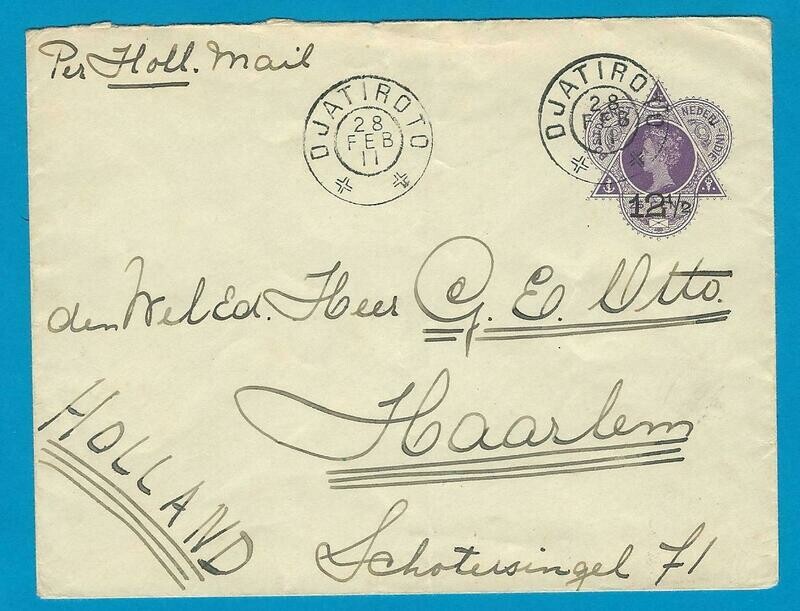 Per Holl. Mail
DJATIROTO
28
FEB
11
DJATIROTO
28
FEB
11
NEDERL-INDIE
12½
den WelEd. Heer G. E. Otto.
Haarlem
HOLLAND
Schotersingel 71